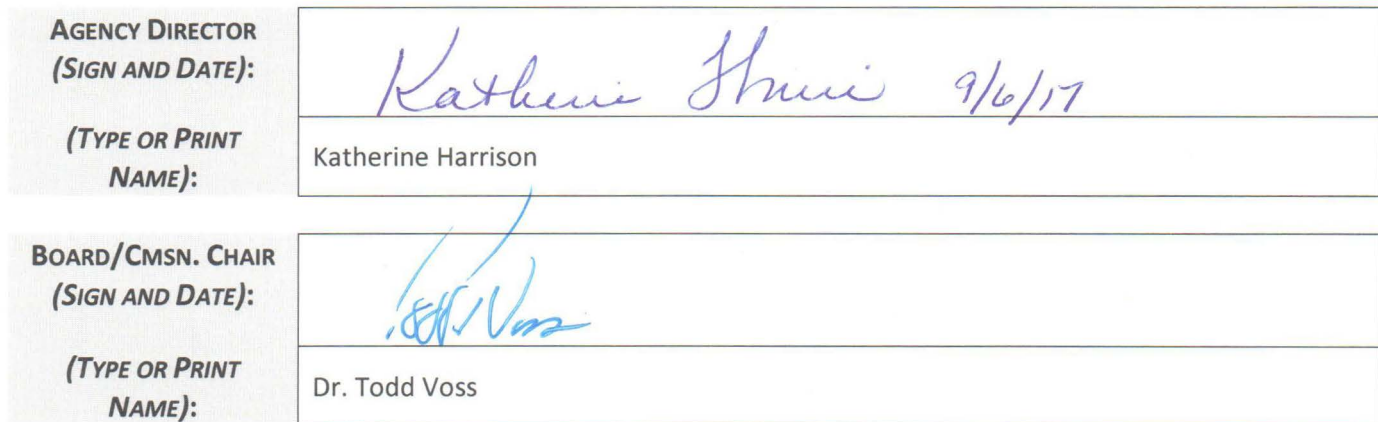 AGENCY DIRECTOR
(SIGN AND DATE):
Katherine 9/6/17
(TYPE OR PRINT
NAME):
Katherine Harrison
BOARD/CMSN. CHAIR
(SIGN AND DATE):
Voss
(TYPE OR PRINT
NAME):
Dr. Todd Voss